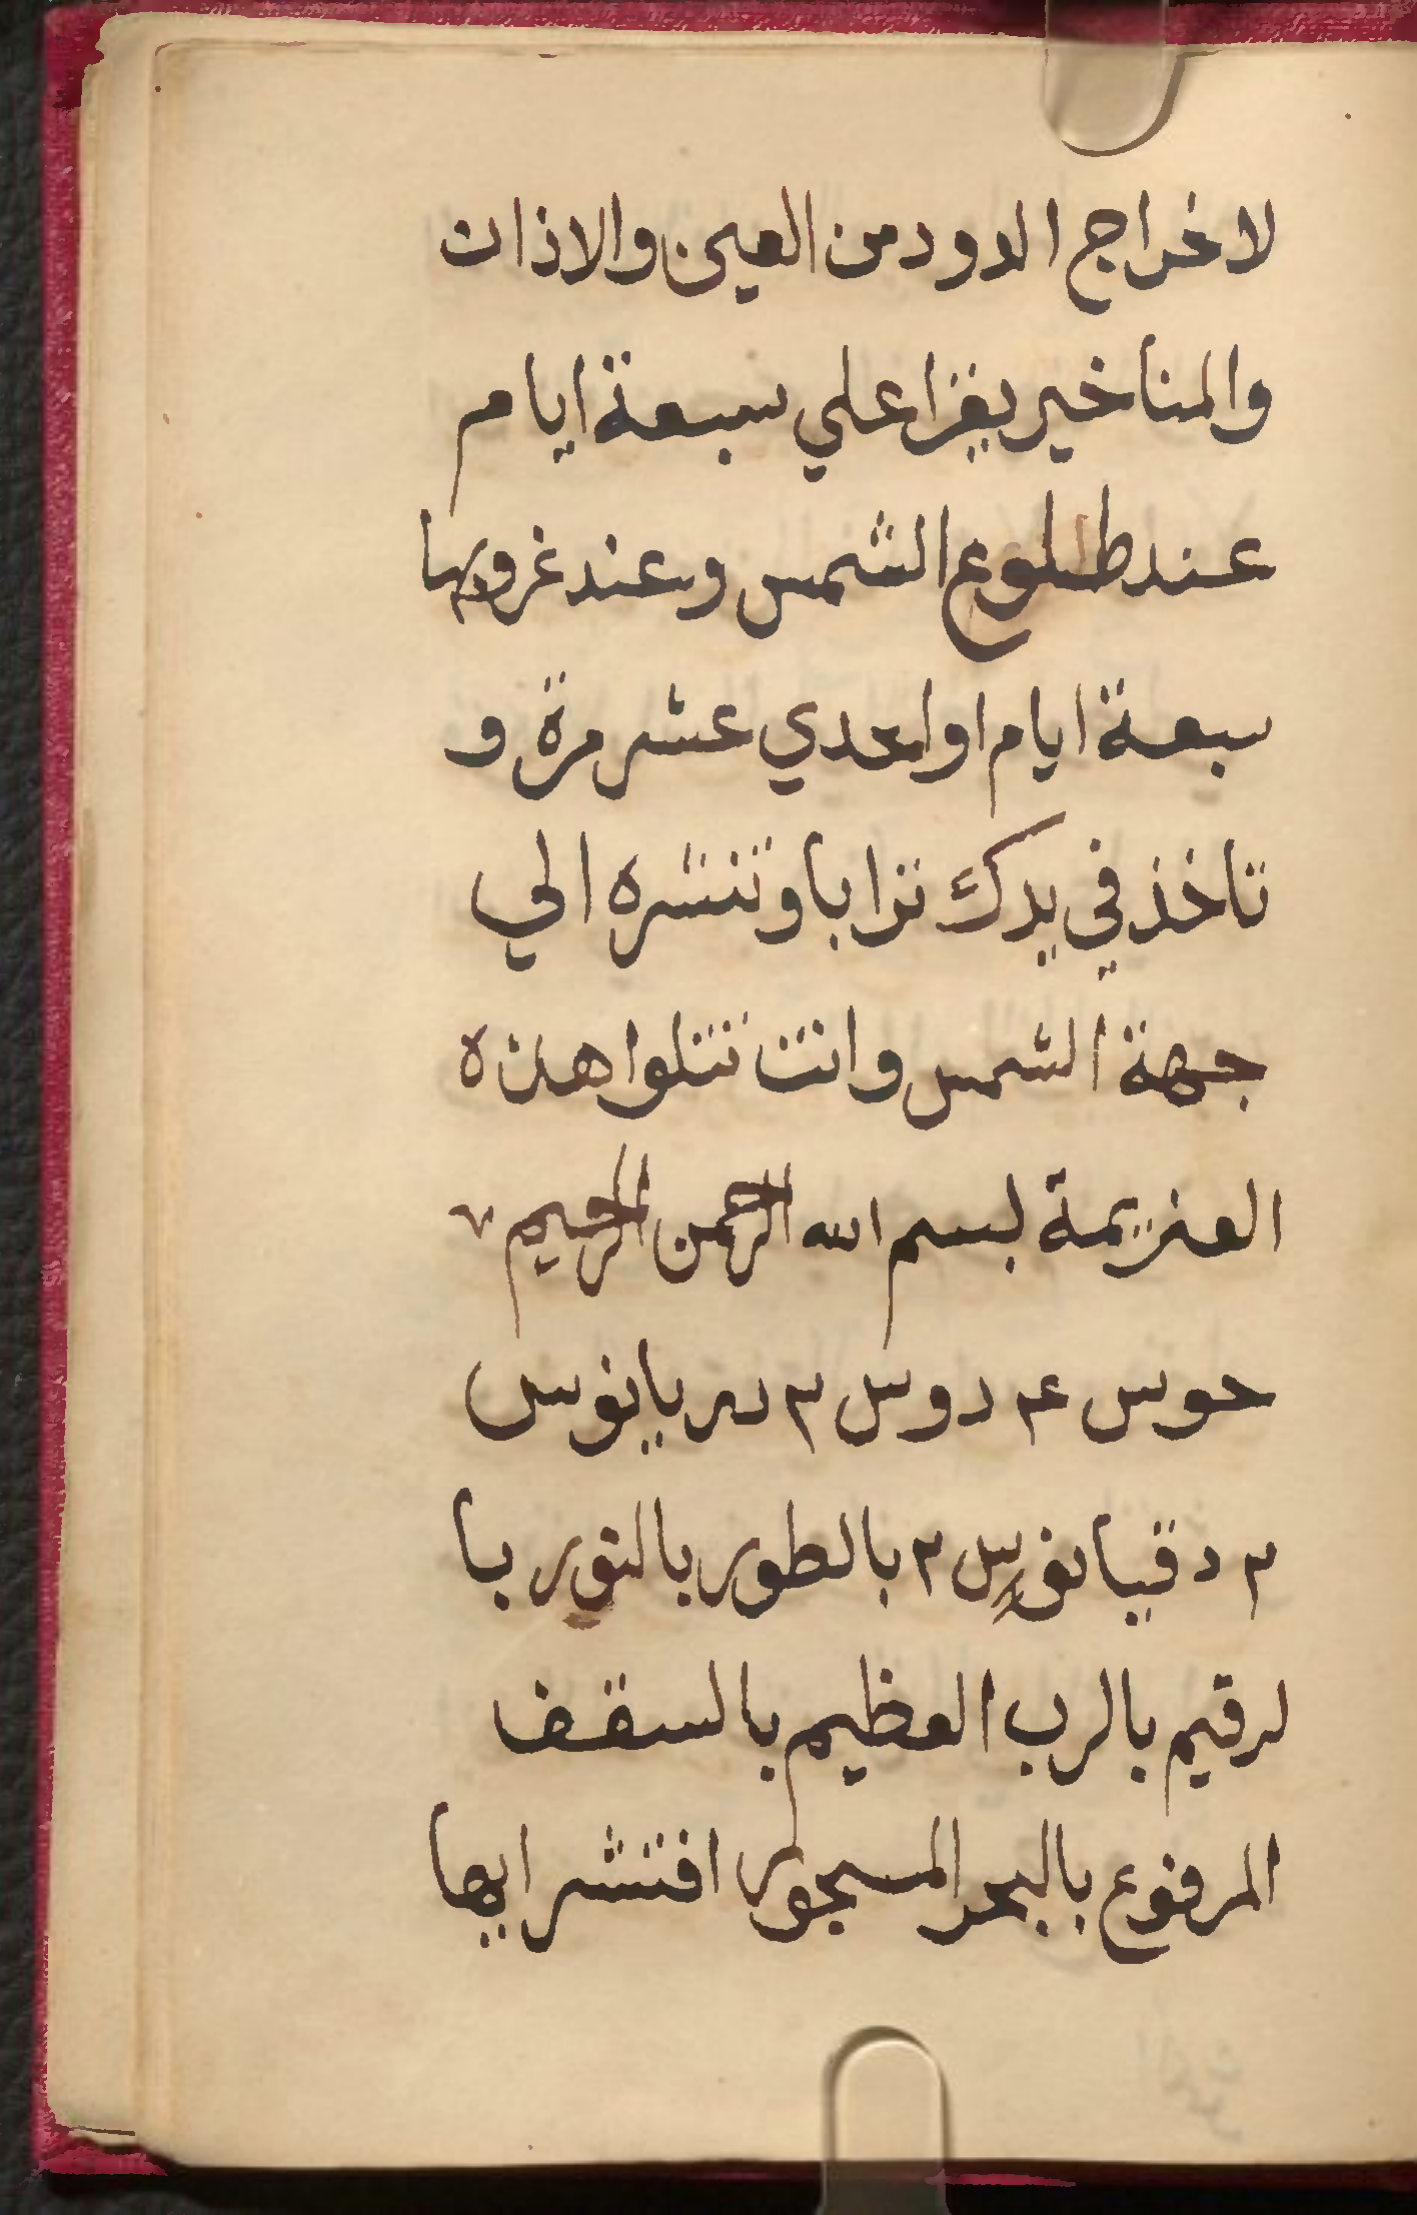 لاخراج الدود من العين والاذان
والمناخير يقرا علي سبعة ايام
عند طلوع الشمس وعند غروبها
سبعة ايام او احدي عشر مرة و
تاخذ في يدك ترابا وتنشره الي
جهة الشمس وانت تتلوا هذه
العزيمة بسم الله الرحمن الرحيم ٧
حوس ٤ دوس ٣ بربانوس
٣ دقيانوس ٢ بالطور بالنور با
لرقيم بالرب العظيم بالسقف
المرفوع بالبحر المسجور افتشر ايها